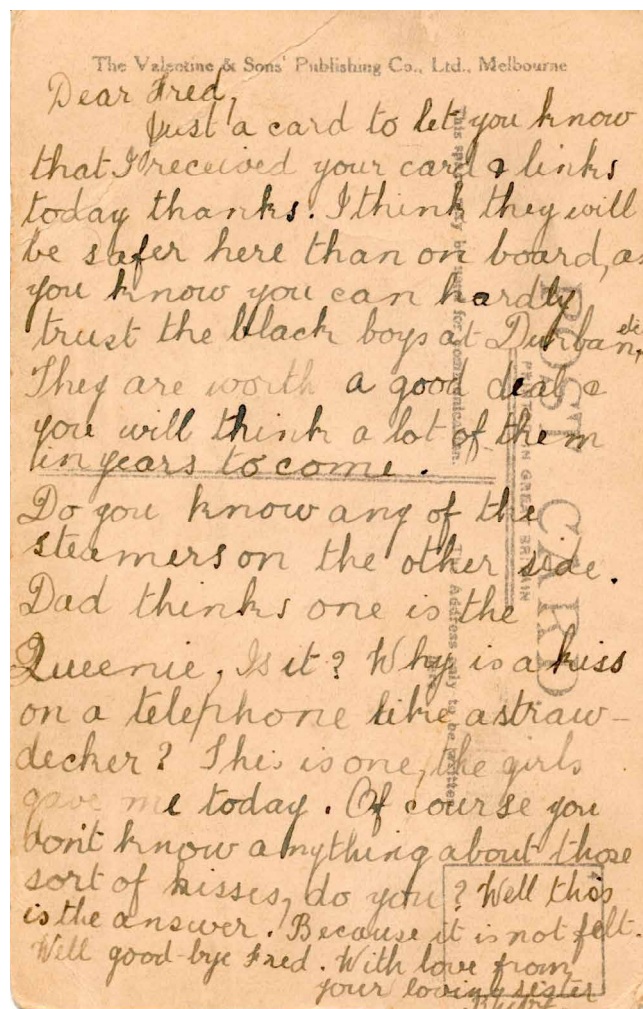 The Valentine & Sons' Publishing Co., Ltd., Melbourne
Dear Fred,
Just a card to let you know
that I received your card & links
today thanks. I think they will
be safer here than on board, as
you know you can hardly
trust the black boys at Durban, etc
They are worth a good deal &
you will think a lot of them
in years to come.
Do you know any of the
steamers on the other side.
Dad thinks one is the
Queenie, Is it? Why is a kiss
on a telephone like a straw-
decker? This is one, the girls
gave me today. Of course you
don't know anything about those
sort of kisses, do you? Well this
is the answer. Because it is not felt.
Well good-bye Fred. With love from
your loving sister
POST CARD
PRINTED IN GREAT BRITAIN
This space may be used for communication.
The Address only to be written